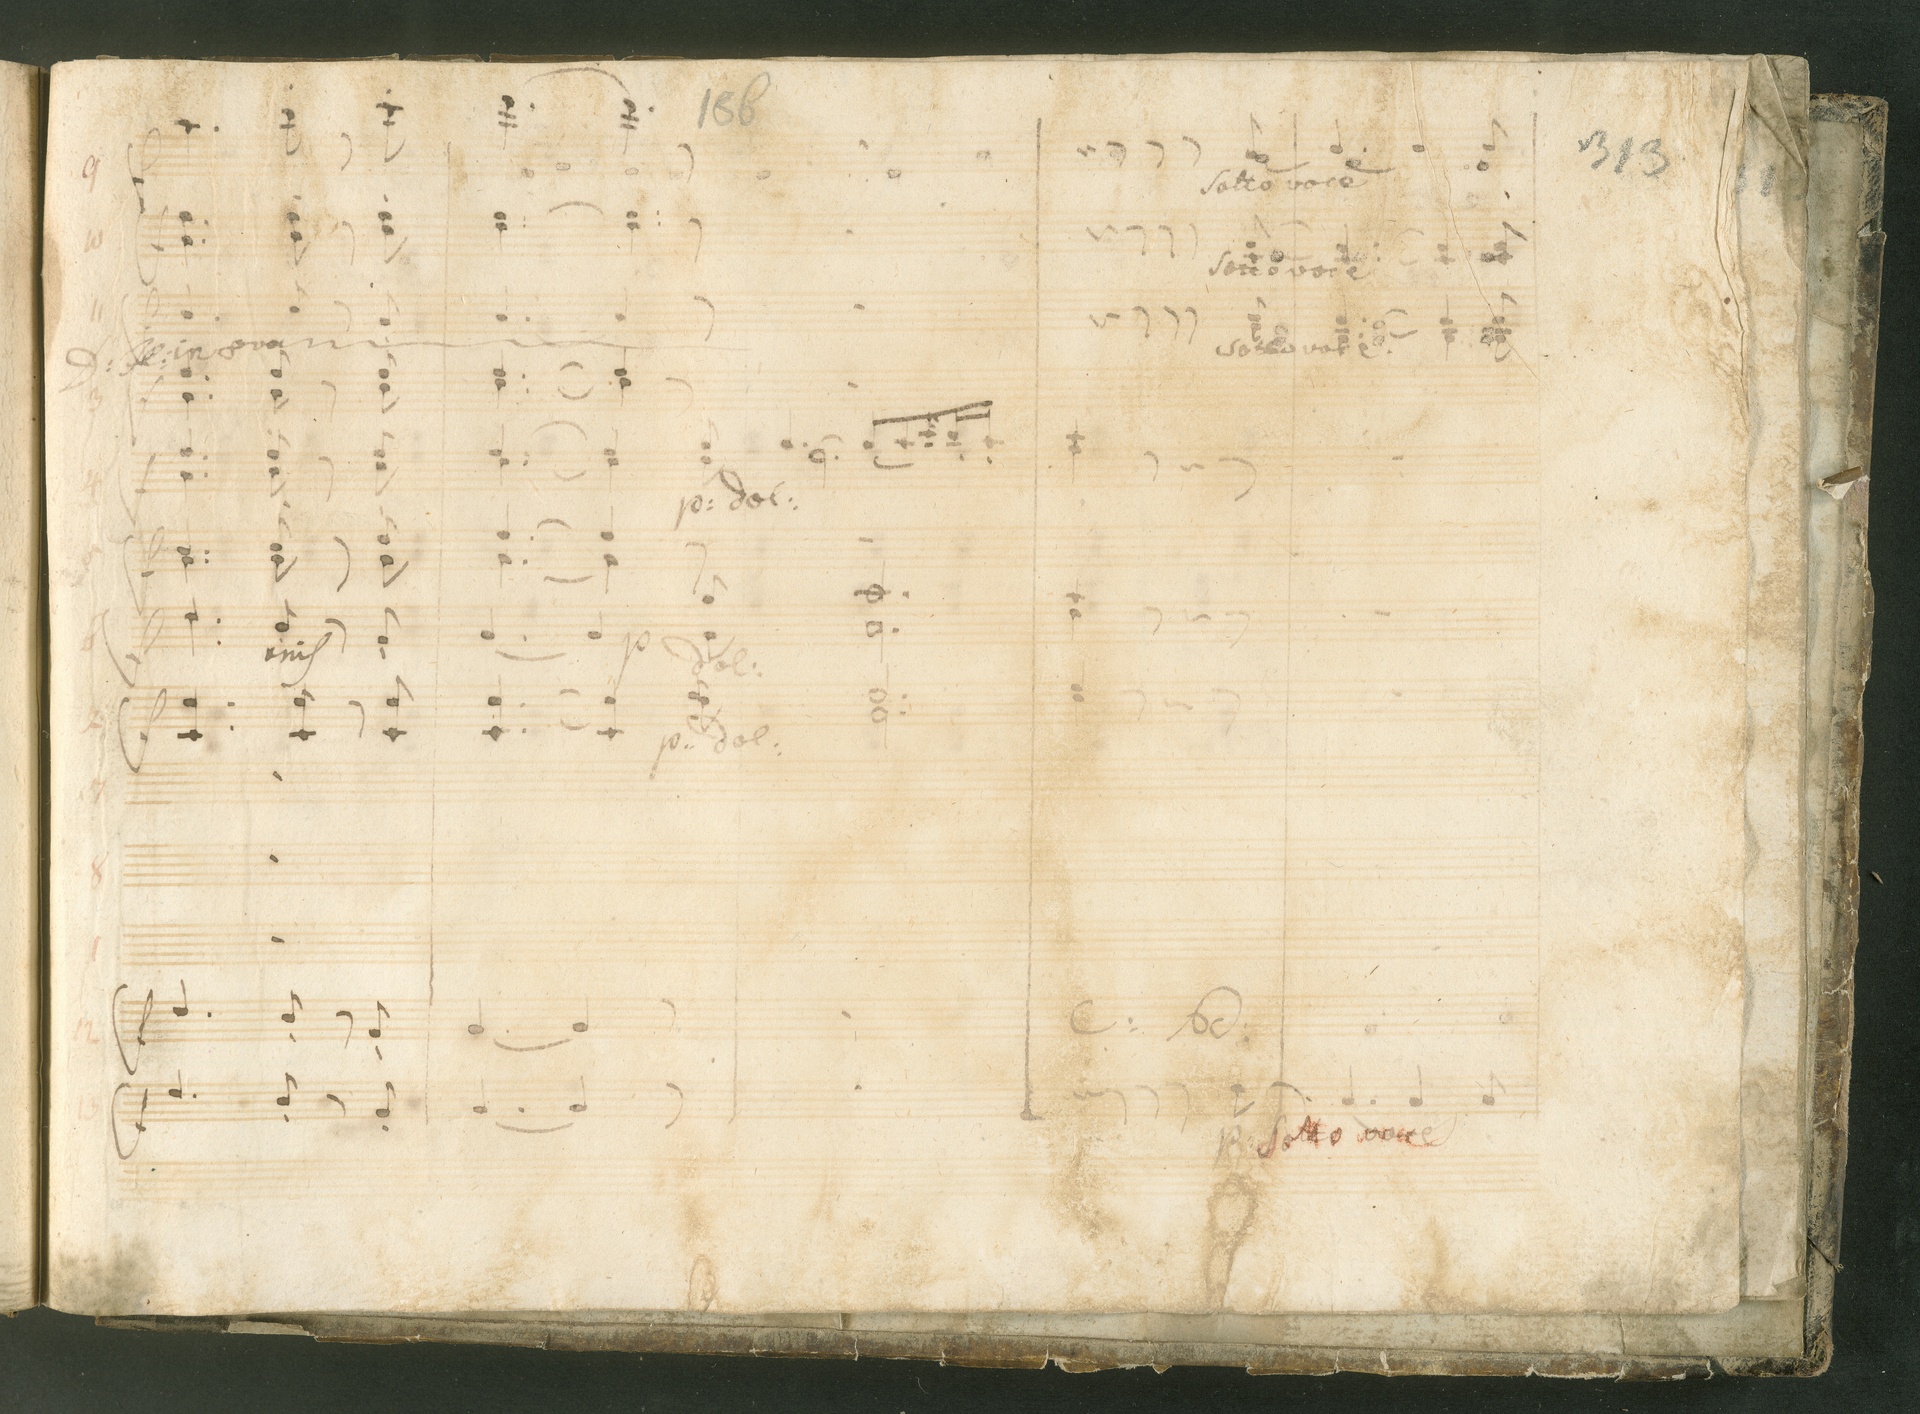 186
313
9
Sotto voce
10
Sotto voce
11
Sotto voce
in 8va
3
4
p: dol:
5
6
unis
p dol:
2
p: dol:
7
8
1
12
C: B:
13
p: Sotto voce